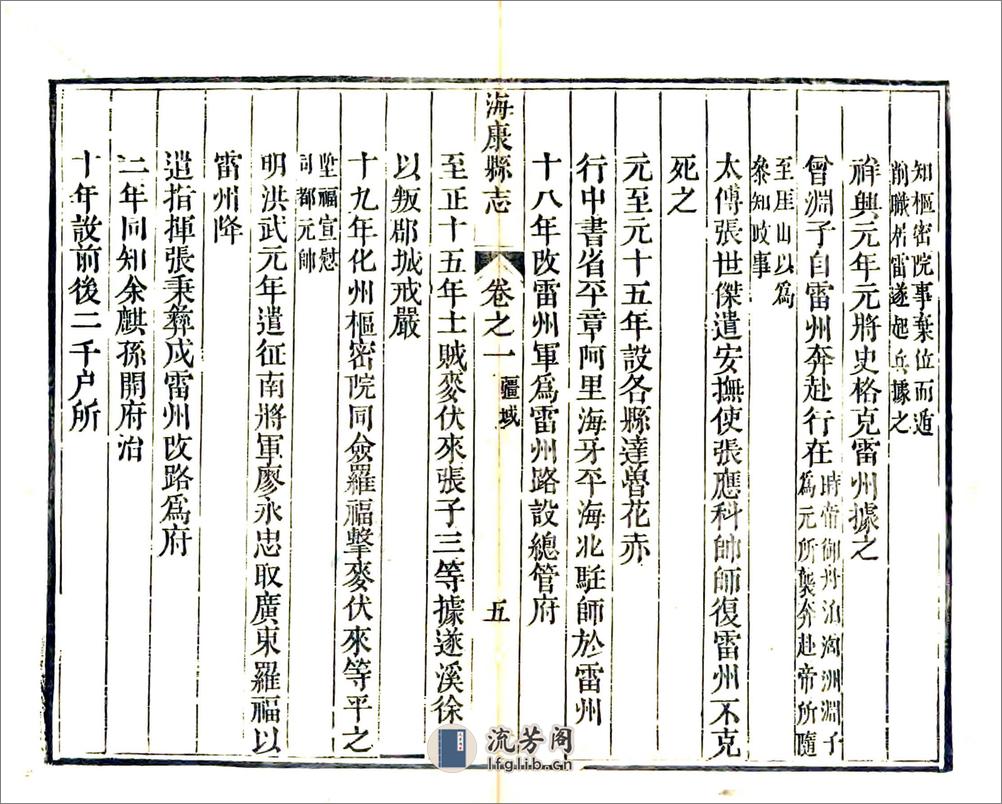 知樞密院事棄位而遁
削職居雷遂起兵據之
祥興元年元將史格克雷州據之
曾淵子自雷州奔赴行在時帝御舟泊硇洲淵子
為元所襲奔赴帝所隨
至厓山以為
參知政事
太傅張世傑遣安撫使張應科帥師復雷州不克
死之
元至元十五年設各縣達魯花赤
行中書省平章阿里海牙平海北駐師於雷州
十八年改雷州軍爲雷州路設總管府
海康縣志
卷之一
疆域
五
至正十五年士賊麥伏來張子三等據遂溪徐
以叛郡城戒嚴
十九年化州樞密院同僉羅福擊麥伏來等平之
陞福宣慰
司都元帥
明洪武元年遣征南將軍廖永忠取廣東羅福以
雷州降
遣指揮張秉彝戍雷州改路爲府
二年同知余麒孫開府治
十年設前後二千户所
流芳阁
lfglib.cn